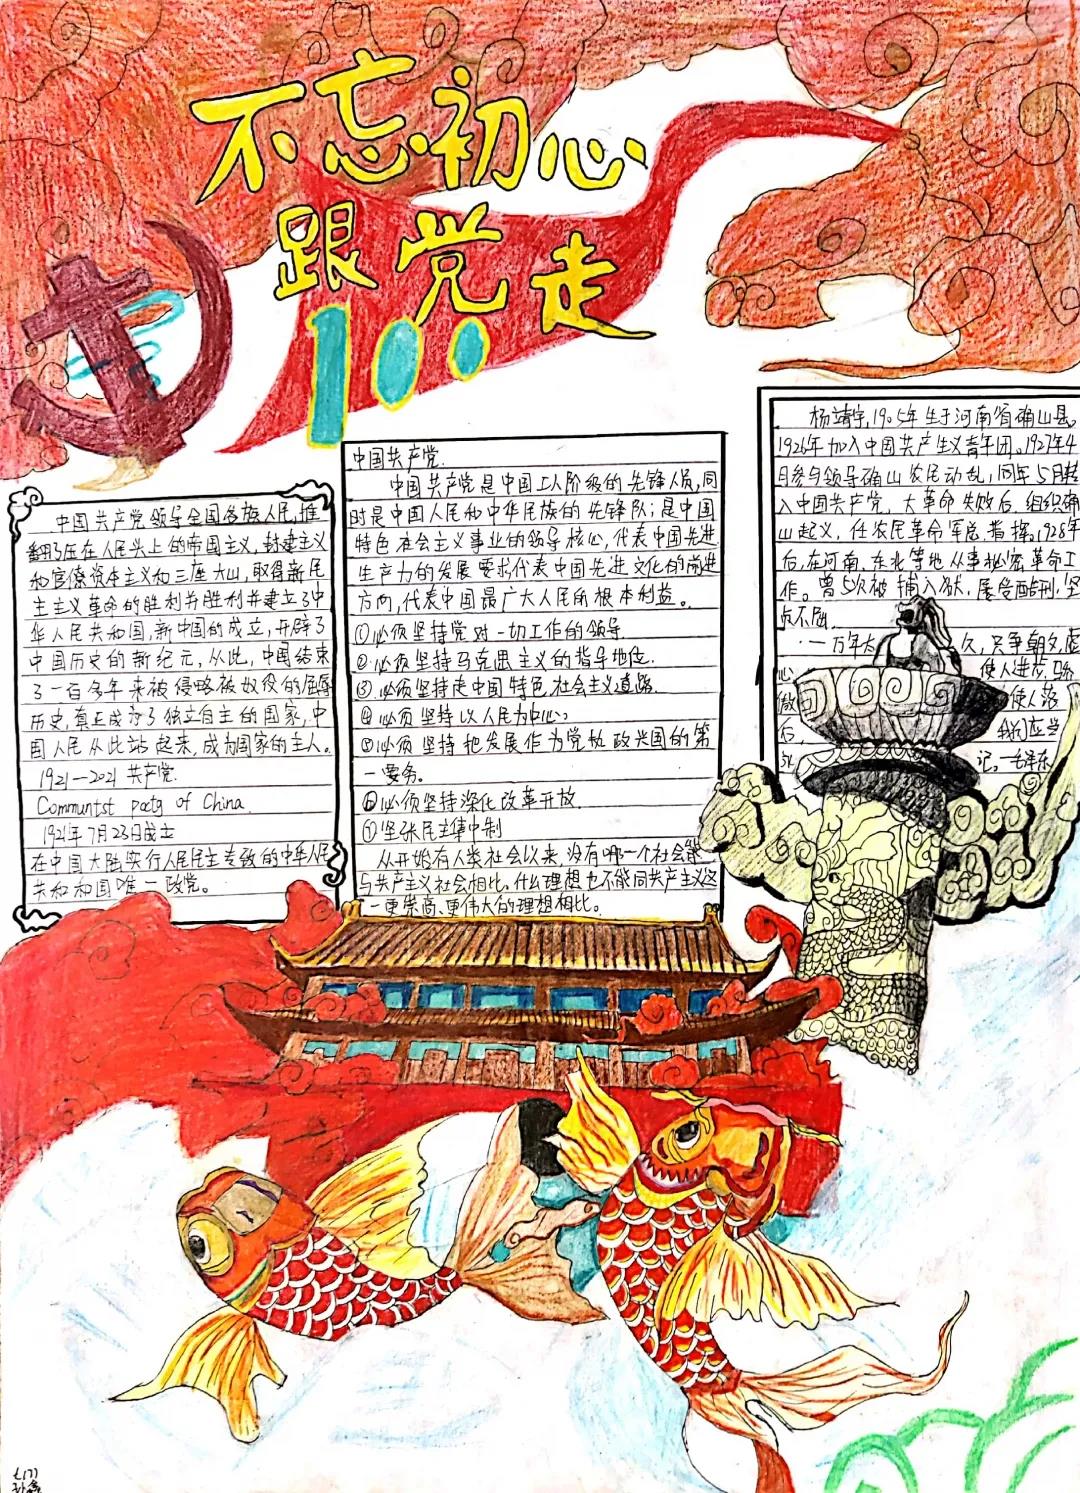 不忘初心
跟党走
100
中国共产党领导全国各族人民,推
翻了压在人民头上的帝国主义,封建主义
和官僚资本主义和三座大山,取得新民
主主义革命的胜利并胜利并建立了中
华人民共和国,新中国的成立,开辟了
中国历史的新纪元,从此,中国结束
了一百多年来被侵略被奴役的屈辱
历史,真正成为了独立自主的国家,中
国人民从此站起来,成为国家的主人。
1921—2021 共产党.
Communtst poety of China.
1921年7月23日成立
在中国大陆实行人民民主专致的中华人民
共和和国唯一政党。
中国共产党.
中国共产党是中国工人阶级的先锋队员,同
时是中国人民和中华民族的先锋队;是中国
特色社会主义事业的领导核心,代表中国先进
生产力的发展要求代表中国先进文化的前进
方向,代表中国最广大人民的根本利益。
①必须坚持党对一切工作的领导.
②必须坚持马克思主义的指导地位.
③必须坚持走中国特色社会主义道路.
④必须坚持以人民为中心。
⑤必须坚持把发展作为党执政兴国的第
一要务。
⑥必须坚持深化改革开放.
⑦坚张民主集中制
从开始有人类社会以来,没有哪一个社会能
与共产主义社会相比,什么理想也不能同共产主义这
一更崇高、更伟大的理想相比。
杨靖宇,1905年生于河南省确山县。
1926年加入中国共产主义青年团。1927年4
月参与领导确山农民动乱,同年5月转
入中国共产党,大革命失败后,组织确
山起义,任农民革命军总指挥。1928年
后,在河南、东北等地从事秘密革命工
作。曾5次被捕入狱,屡受酷刑,坚
贞不屈.
一万年太久,只争朝夕,虚
心 使人进步,骄
傲 使人落
后, 我们应当
记。—毛泽东